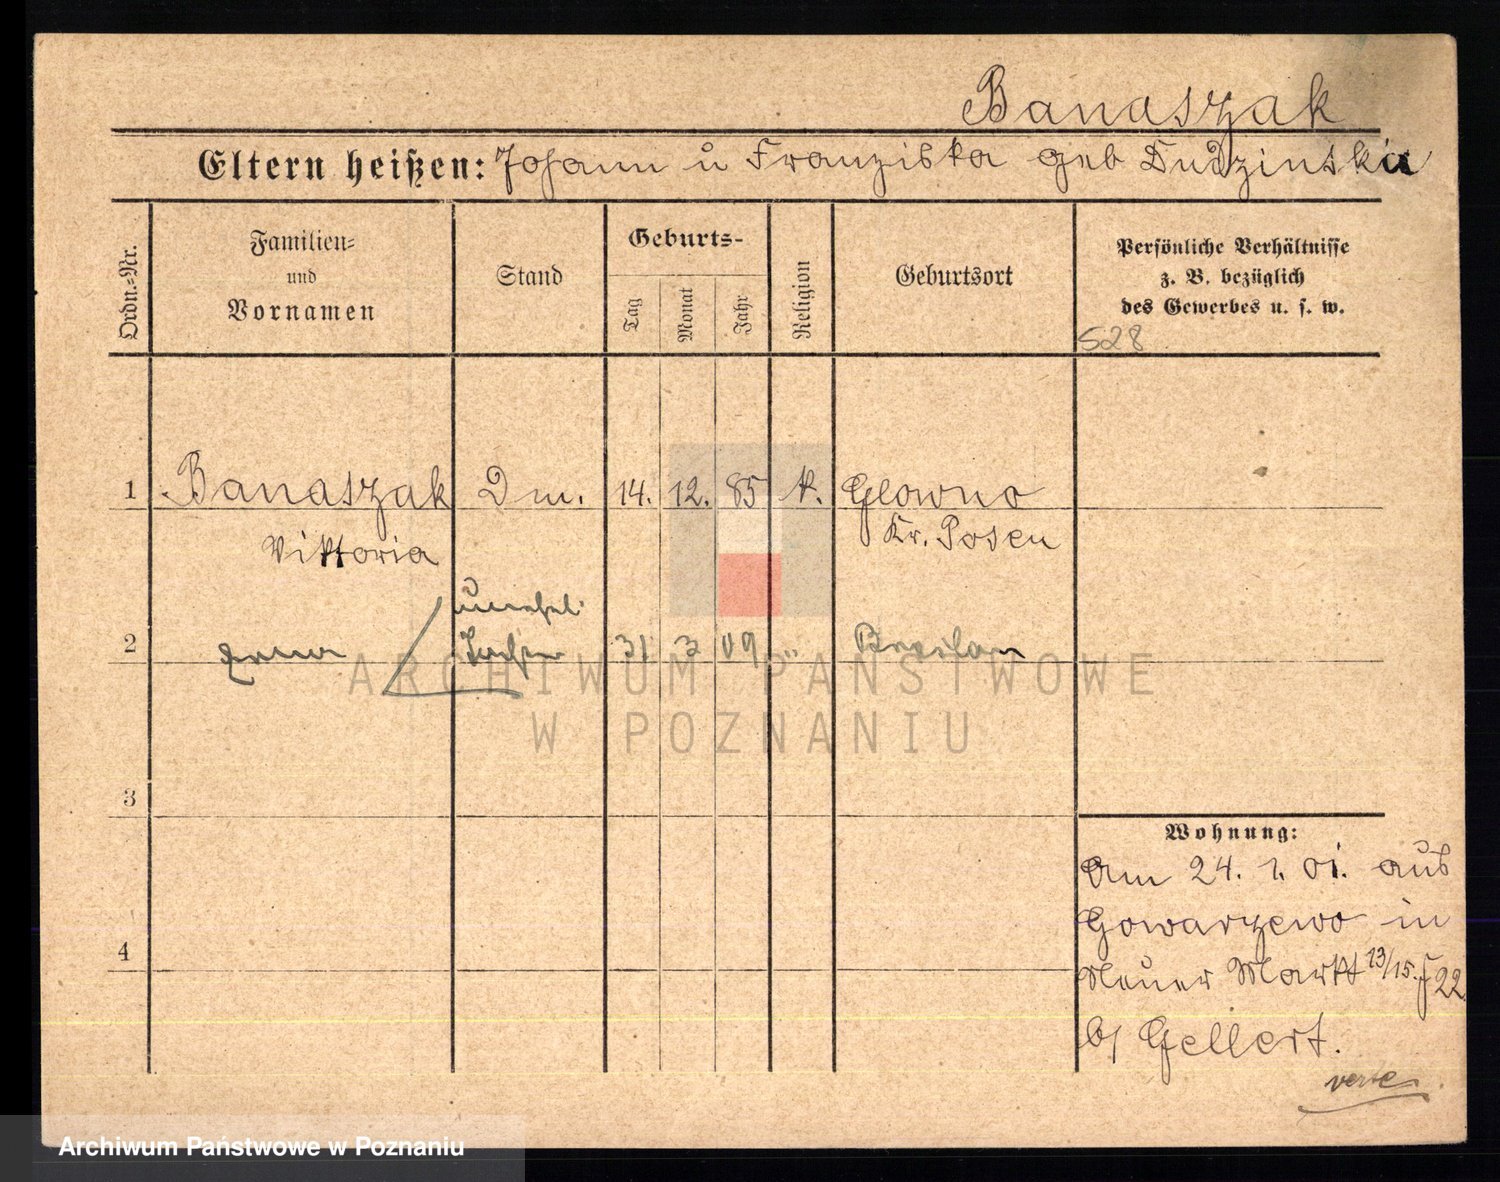 Banaszak
Eltern heißen: Johann u Franziska geb Dudzinska
Ordn.-Nr.
Familien-
und
Vornamen
Stand
Geburts-
Tag
Monat
Jahr
Religion
Geburtsort
Persönliche Verhältnisse
z. B. bezüglich
des Gewerbes u. s. w.
528
1 Banaszak Dm. 14. 12. 85 k. Glowno
Viktoria Kr. Posen
unehel.
2 Tochter 31 3 09 " Breslau
3
4
Wohnung:
Am 24. 1. 01. aus
Gowarzewo in
Neuer Markt 13/15. 22
b/ Gellert.
verte
ARCHIWUM PAŃSTWOWE
W POZNANIU
Archiwum Państwowe w Poznaniu